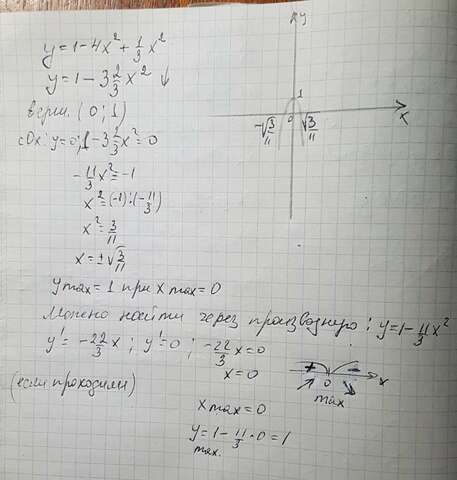 y = 1 - 4x² + 1/3 x²
y = 1 - 3 2/3 x² ↓
верш. (0; 1)
с Ox: y = 0; 1 - 3 2/3 x² = 0
- 11/3 x² = -1
x² = (-1) : (- 11/3)
x² = 3/11
x = ±√3/11
y max = 1 при x max = 0
Можно найти через производную: y = 1 - 11/3 x²
y' = - 22/3 x; y' = 0; - 22/3 x = 0
x = 0
(если проходили)
x max = 0
y = 1 - 11/3 · 0 = 1
max.
y
1
0
x
-√3/11
√3/11
+ -
0
x
max